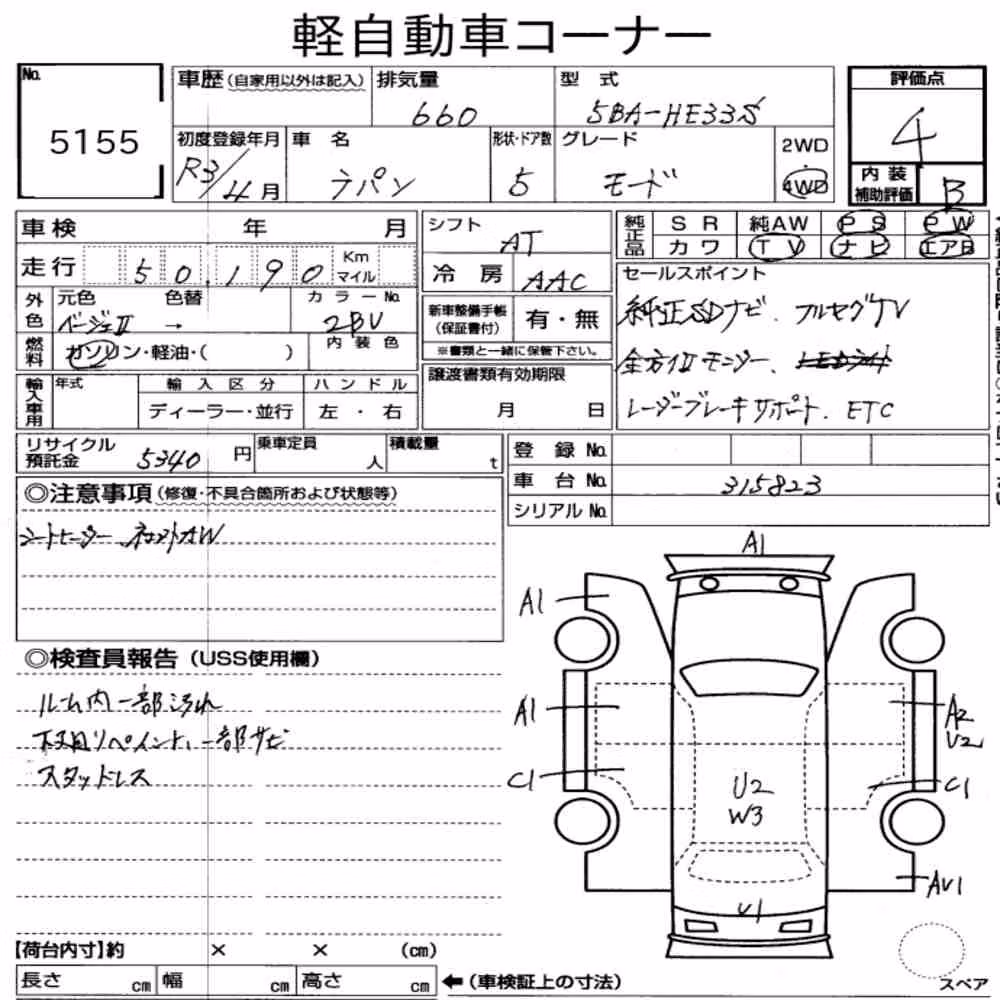 軽自動車コーナー
No. 5155
車歴(自家用以外は記入) 排気量 660
型式 5BA-HE33S
評価点 4
初度登録年月 R3/4月
車名 ラパン
形状・ドア数 5
グレード モード
2WD
4WD
内装補助評価 B
車検 年 月
走行 50,190 Km マイル
外色 元色 ベージュII 色替 → カラーNo. 2BV
燃料 ガソリン・軽油・( ) 内装色
輸入車用 年式 輸入区分 ハンドル
ディーラー・並行 左・右
シフト AT
冷房 AAC
新車整備手帳(保証書付) 有・無
※書類と一緒に保管下さい。
譲渡書類有効期限
月 日
純正品 SR 純AW PS PW
カワ TV ナビ エアB
セールスポイント
純正SDナビ、フルセグTV
全方位モニター、
レーダーブレーキサポート. ETC
リサイクル預託金 5340円 乗車定員 人 積載量 t
登録No.
車台No. 315823
シリアルNo.
◎注意事項(修復・不具合箇所および状態等)
シートヒーター、ネクストAW
◎検査員報告(USS使用欄)
ルーム内一部汚れ
下回りペイント、一部サビ
スタッドレス
A1
A1
A1
A2
U2
C1
U2
W3
C1
AU1
U1
スペア
【荷台内寸】約 × × (cm)
長さ cm 幅 cm 高さ cm ←(車検証上の寸法)